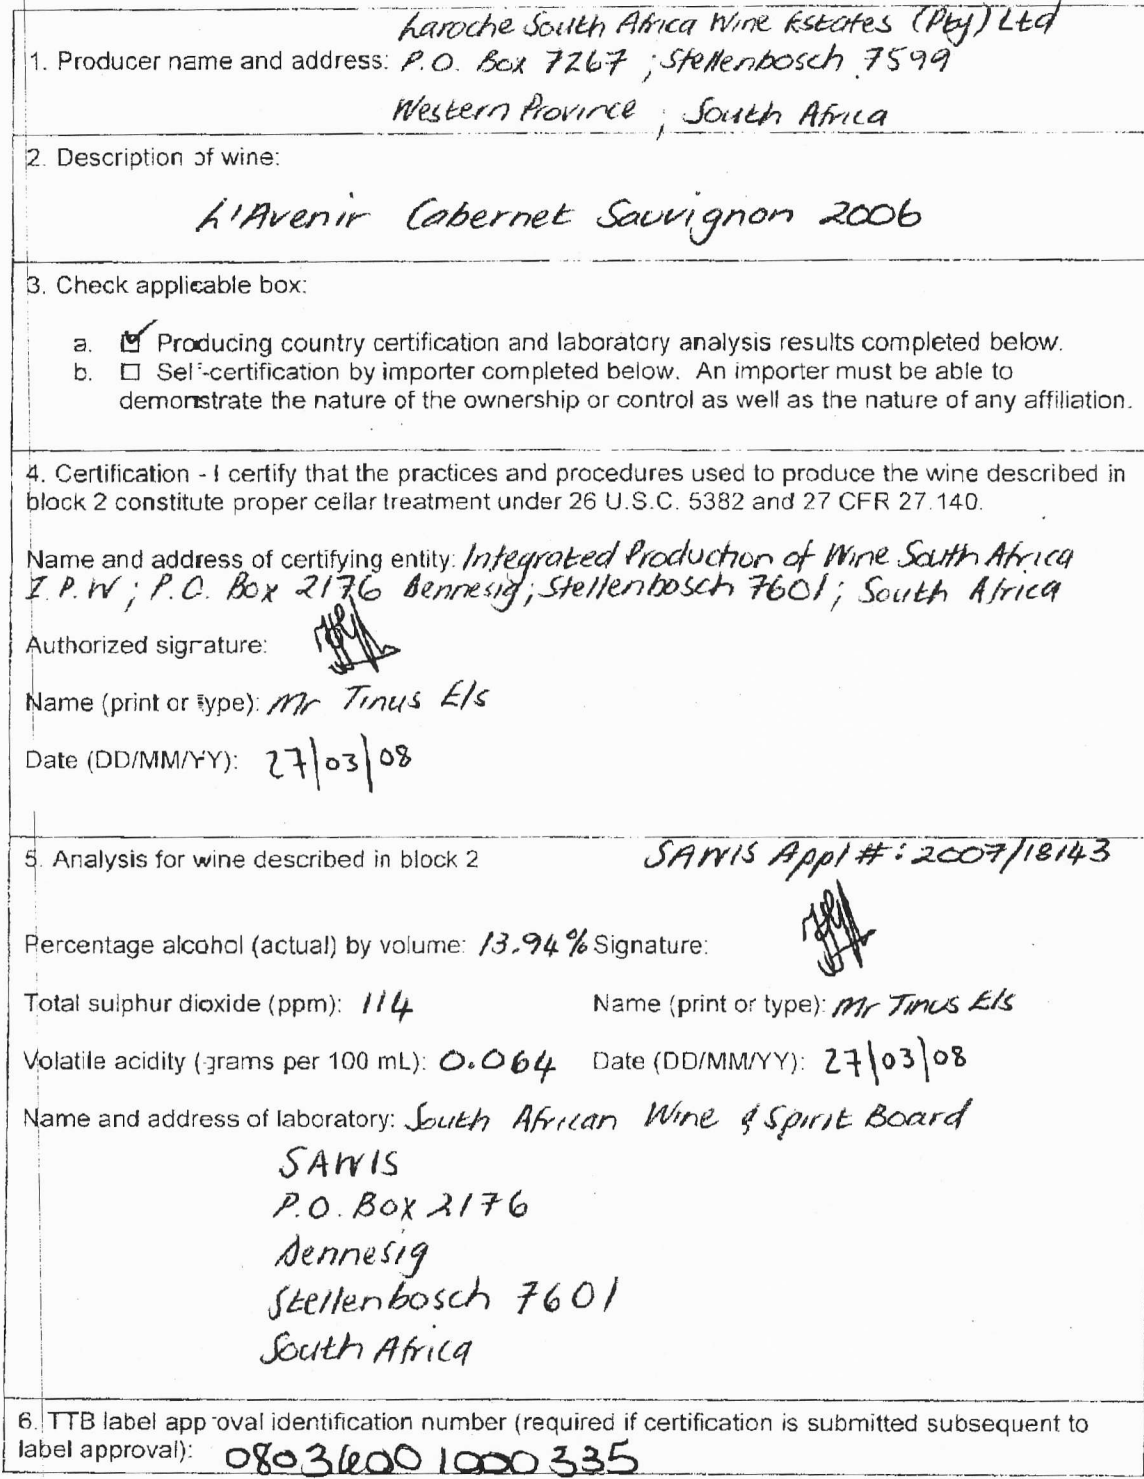 Laroche South Africa Wine Estates (Pty) Ltd
1. Producer name and address: P.O. Box 7267 ; Stellenbosch 7599
Western Province ; South Africa
2. Description of wine:
L'Avenir Cabernet Sauvignon 2006
3. Check applicable box:
a. ☑ Producing country certification and laboratory analysis results completed below.
b. ☐ Self-certification by importer completed below. An importer must be able to
demonstrate the nature of the ownership or control as well as the nature of any affiliation.
4. Certification - I certify that the practices and procedures used to produce the wine described in
block 2 constitute proper cellar treatment under 26 U.S.C. 5382 and 27 CFR 27.140.
Name and address of certifying entity: Integrated Production of Wine South Africa
I.P.W ; P.O. Box 2176 Dennesig ; Stellenbosch 7601 ; South Africa
Authorized signature:
Name (print or type): Mr Tinus Els
Date (DD/MM/YY): 27/03/08
5. Analysis for wine described in block 2 SAWIS Appl #: 2007/18143
Percentage alcohol (actual) by volume: 13.94% Signature:
Total sulphur dioxide (ppm): 114 Name (print or type): Mr Tinus Els
Volatile acidity (grams per 100 mL): 0.064 Date (DD/MM/YY): 27/03/08
Name and address of laboratory: South African Wine & Spirit Board
SAWIS
P.O. Box 2176
Dennesig
Stellenbosch 7601
South Africa
6. TTB label approval identification number (required if certification is submitted subsequent to
label approval): 08036001000335